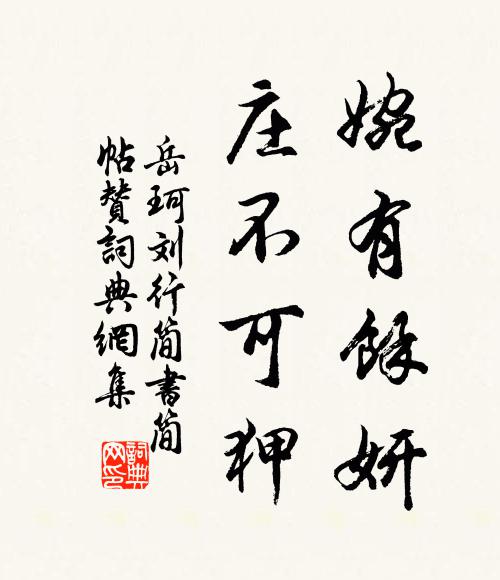 婉有餘妍
庄不可狎
岳珂刘行简書简
帖賛詞典網集
詞典网印